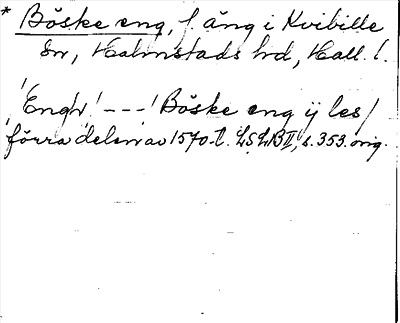 * Böske eng, f. äng i Kvibille
sn, Halmstads hd, Hall. l.
'Engh' --- 'Böske eng ij les/
förra delen av 1570-t. LSLB II, s. 353. orig.